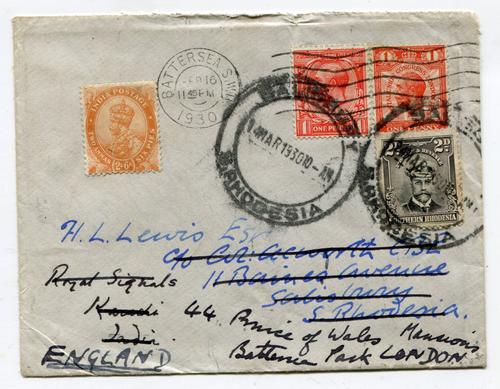 BATTERSEA S.W.11
FEB 16
11 45 PM
1930
INDIA POSTAGE
TWO ANNAS SIX PIES
2A6P
1 ONE PENNY 1
1 ONE PENNY 1
SALISBURY
MAR 1930
S. RHODESIA
2D 2D
NORTHERN RHODESIA
SALISBURY
S. RHODESIA
H. L. Lewis Esq
c/o
11 Baines Avenue
Salisbury
S. Rhodesia.
Royal Signals
India
44 Prince of Wales Mansions
Battersea Park LONDON
ENGLAND